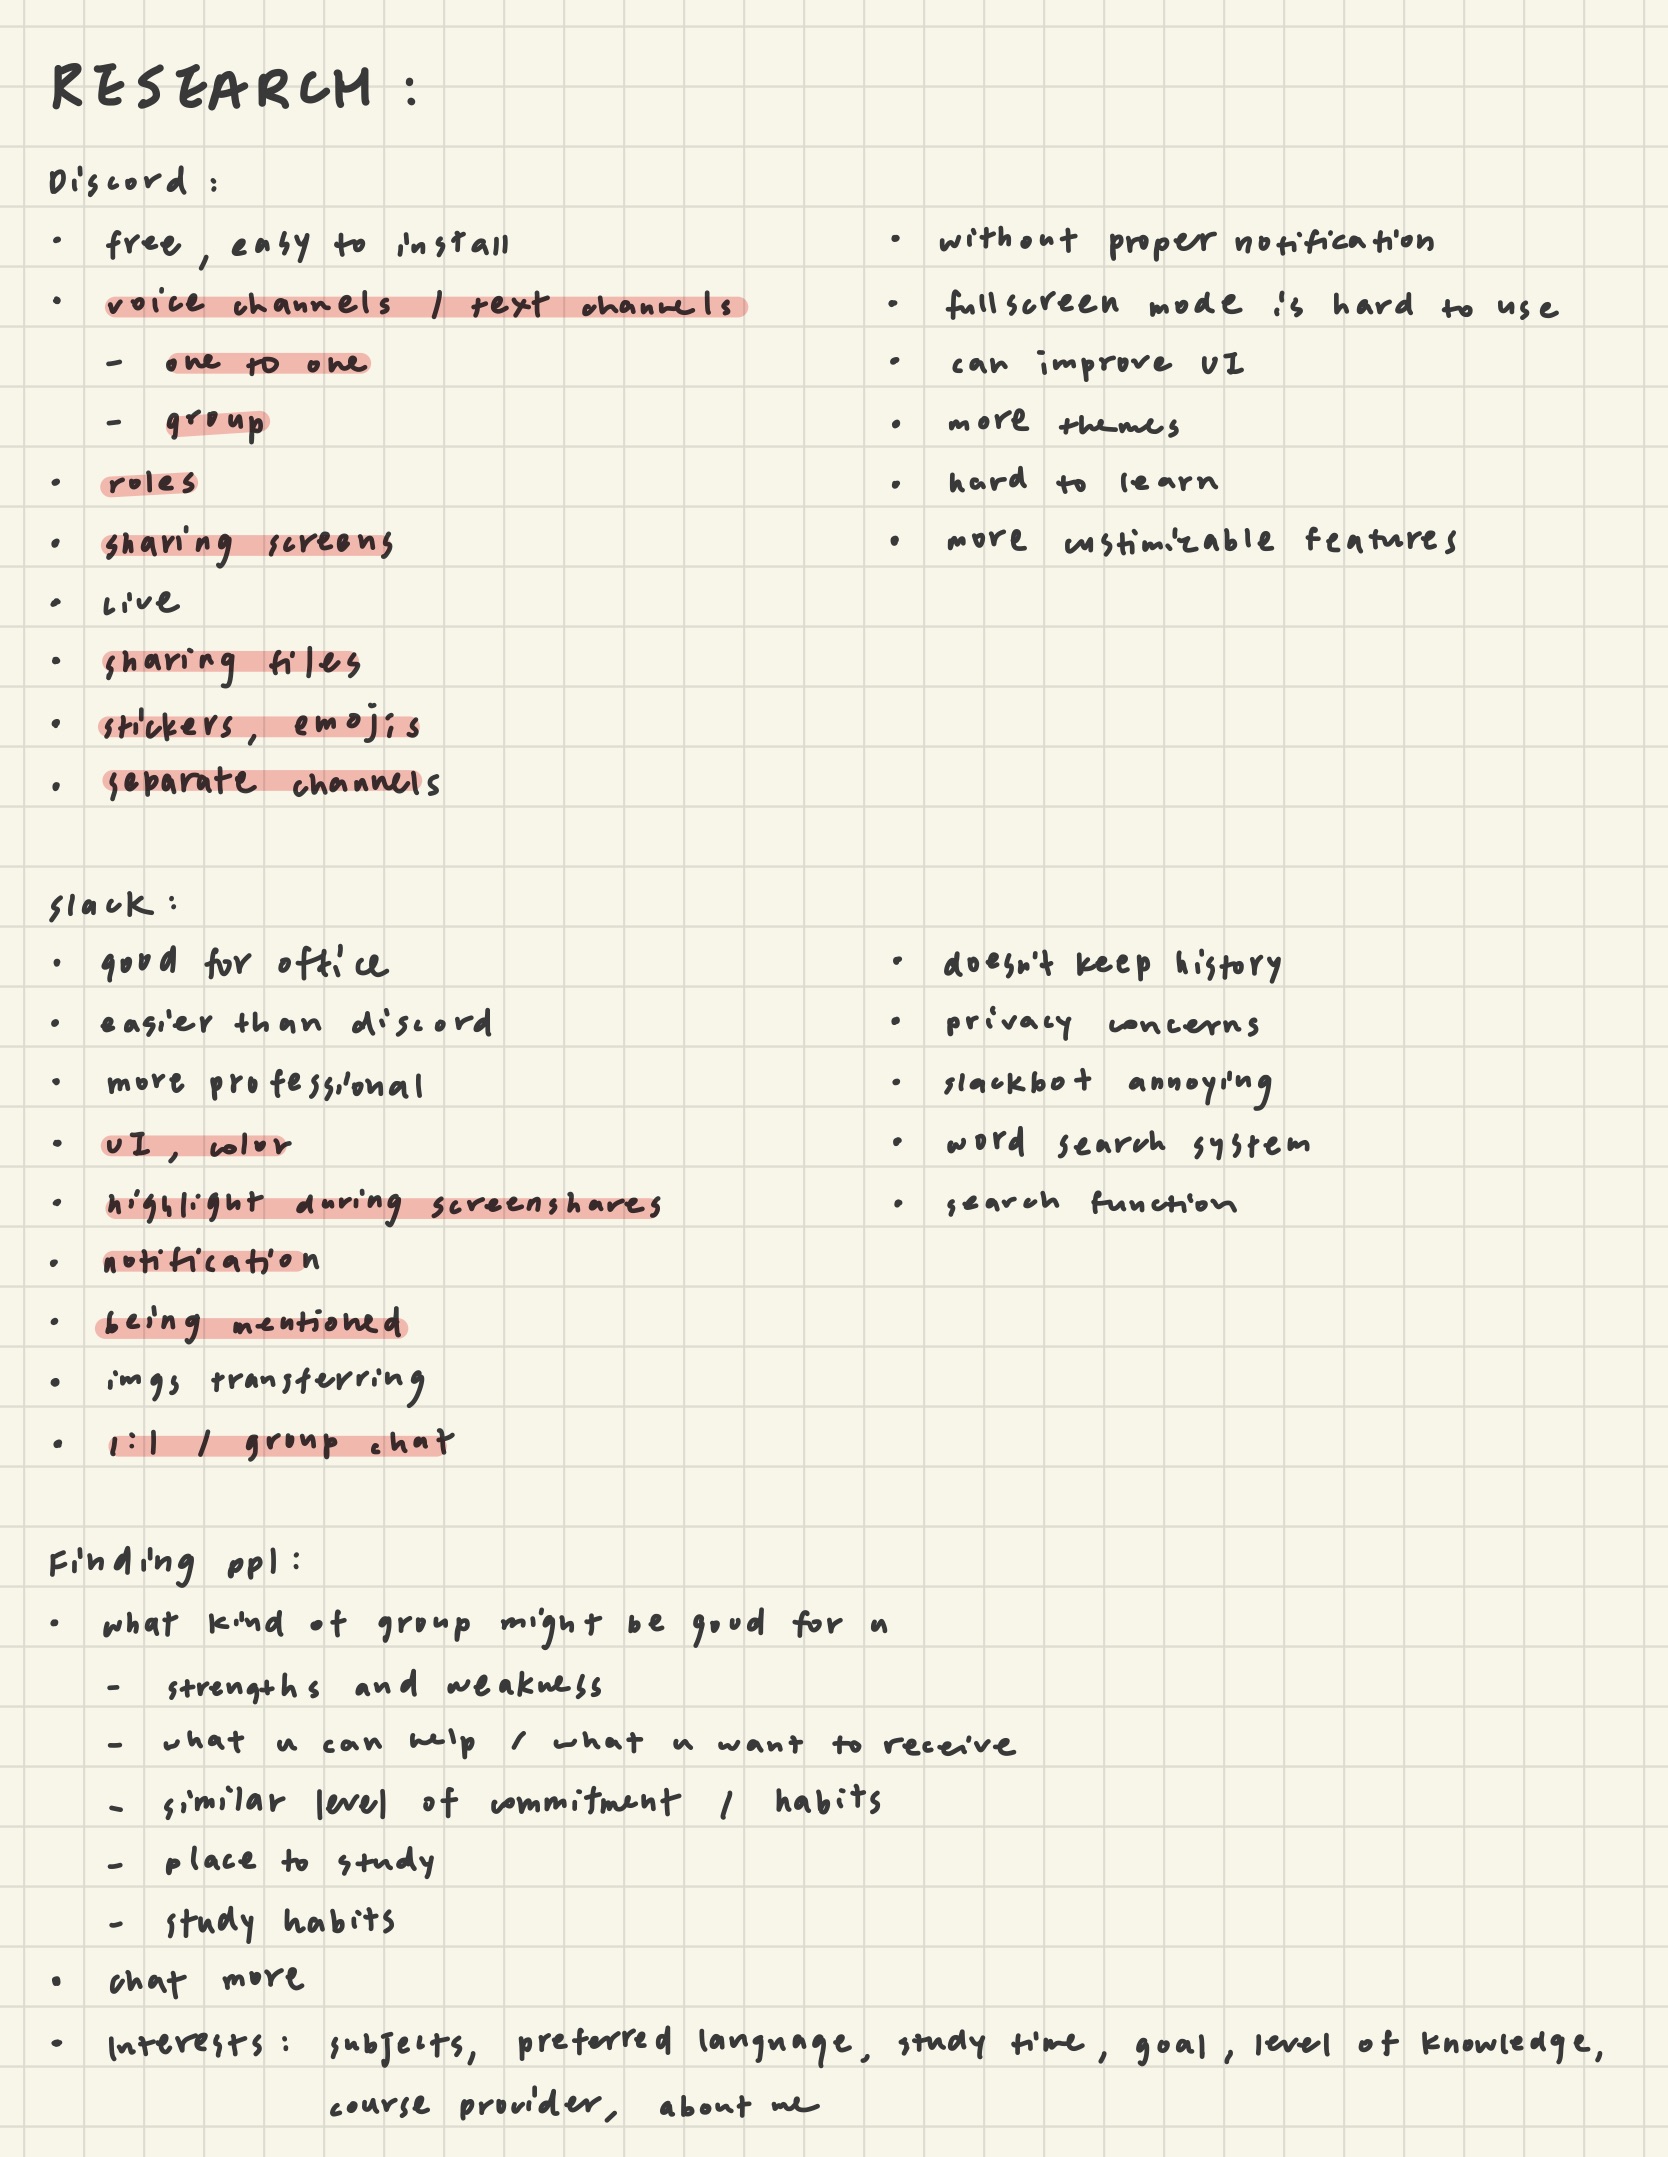 RESEARCH :
Discord :
• free, easy to install
• voice channels / text channels
- one to one
- group
• roles
• sharing screens
• Live
• sharing files
• stickers, emojis
• separate channels
• without proper notification
• fullscreen mode is hard to use
• can improve UI
• more themes
• hard to learn
• more custimizable features
slack :
• good for office
• easier than discord
• more professional
• UI, color
• highlight during screenshares
• notification
• being mentioned
• imgs transferring
• 1:1 / group chat
• doesn't keep history
• privacy concerns
• slackbot annoying
• word search system
• search function
Finding ppl :
• what kind of group might be good for u
- strengths and weakness
- what u can help / what u want to receive
- similar level of commitment / habits
- place to study
- study habits
• chat more
• Interests : subjects, preferred language, study time, goal, level of knowledge,
course provider, about me